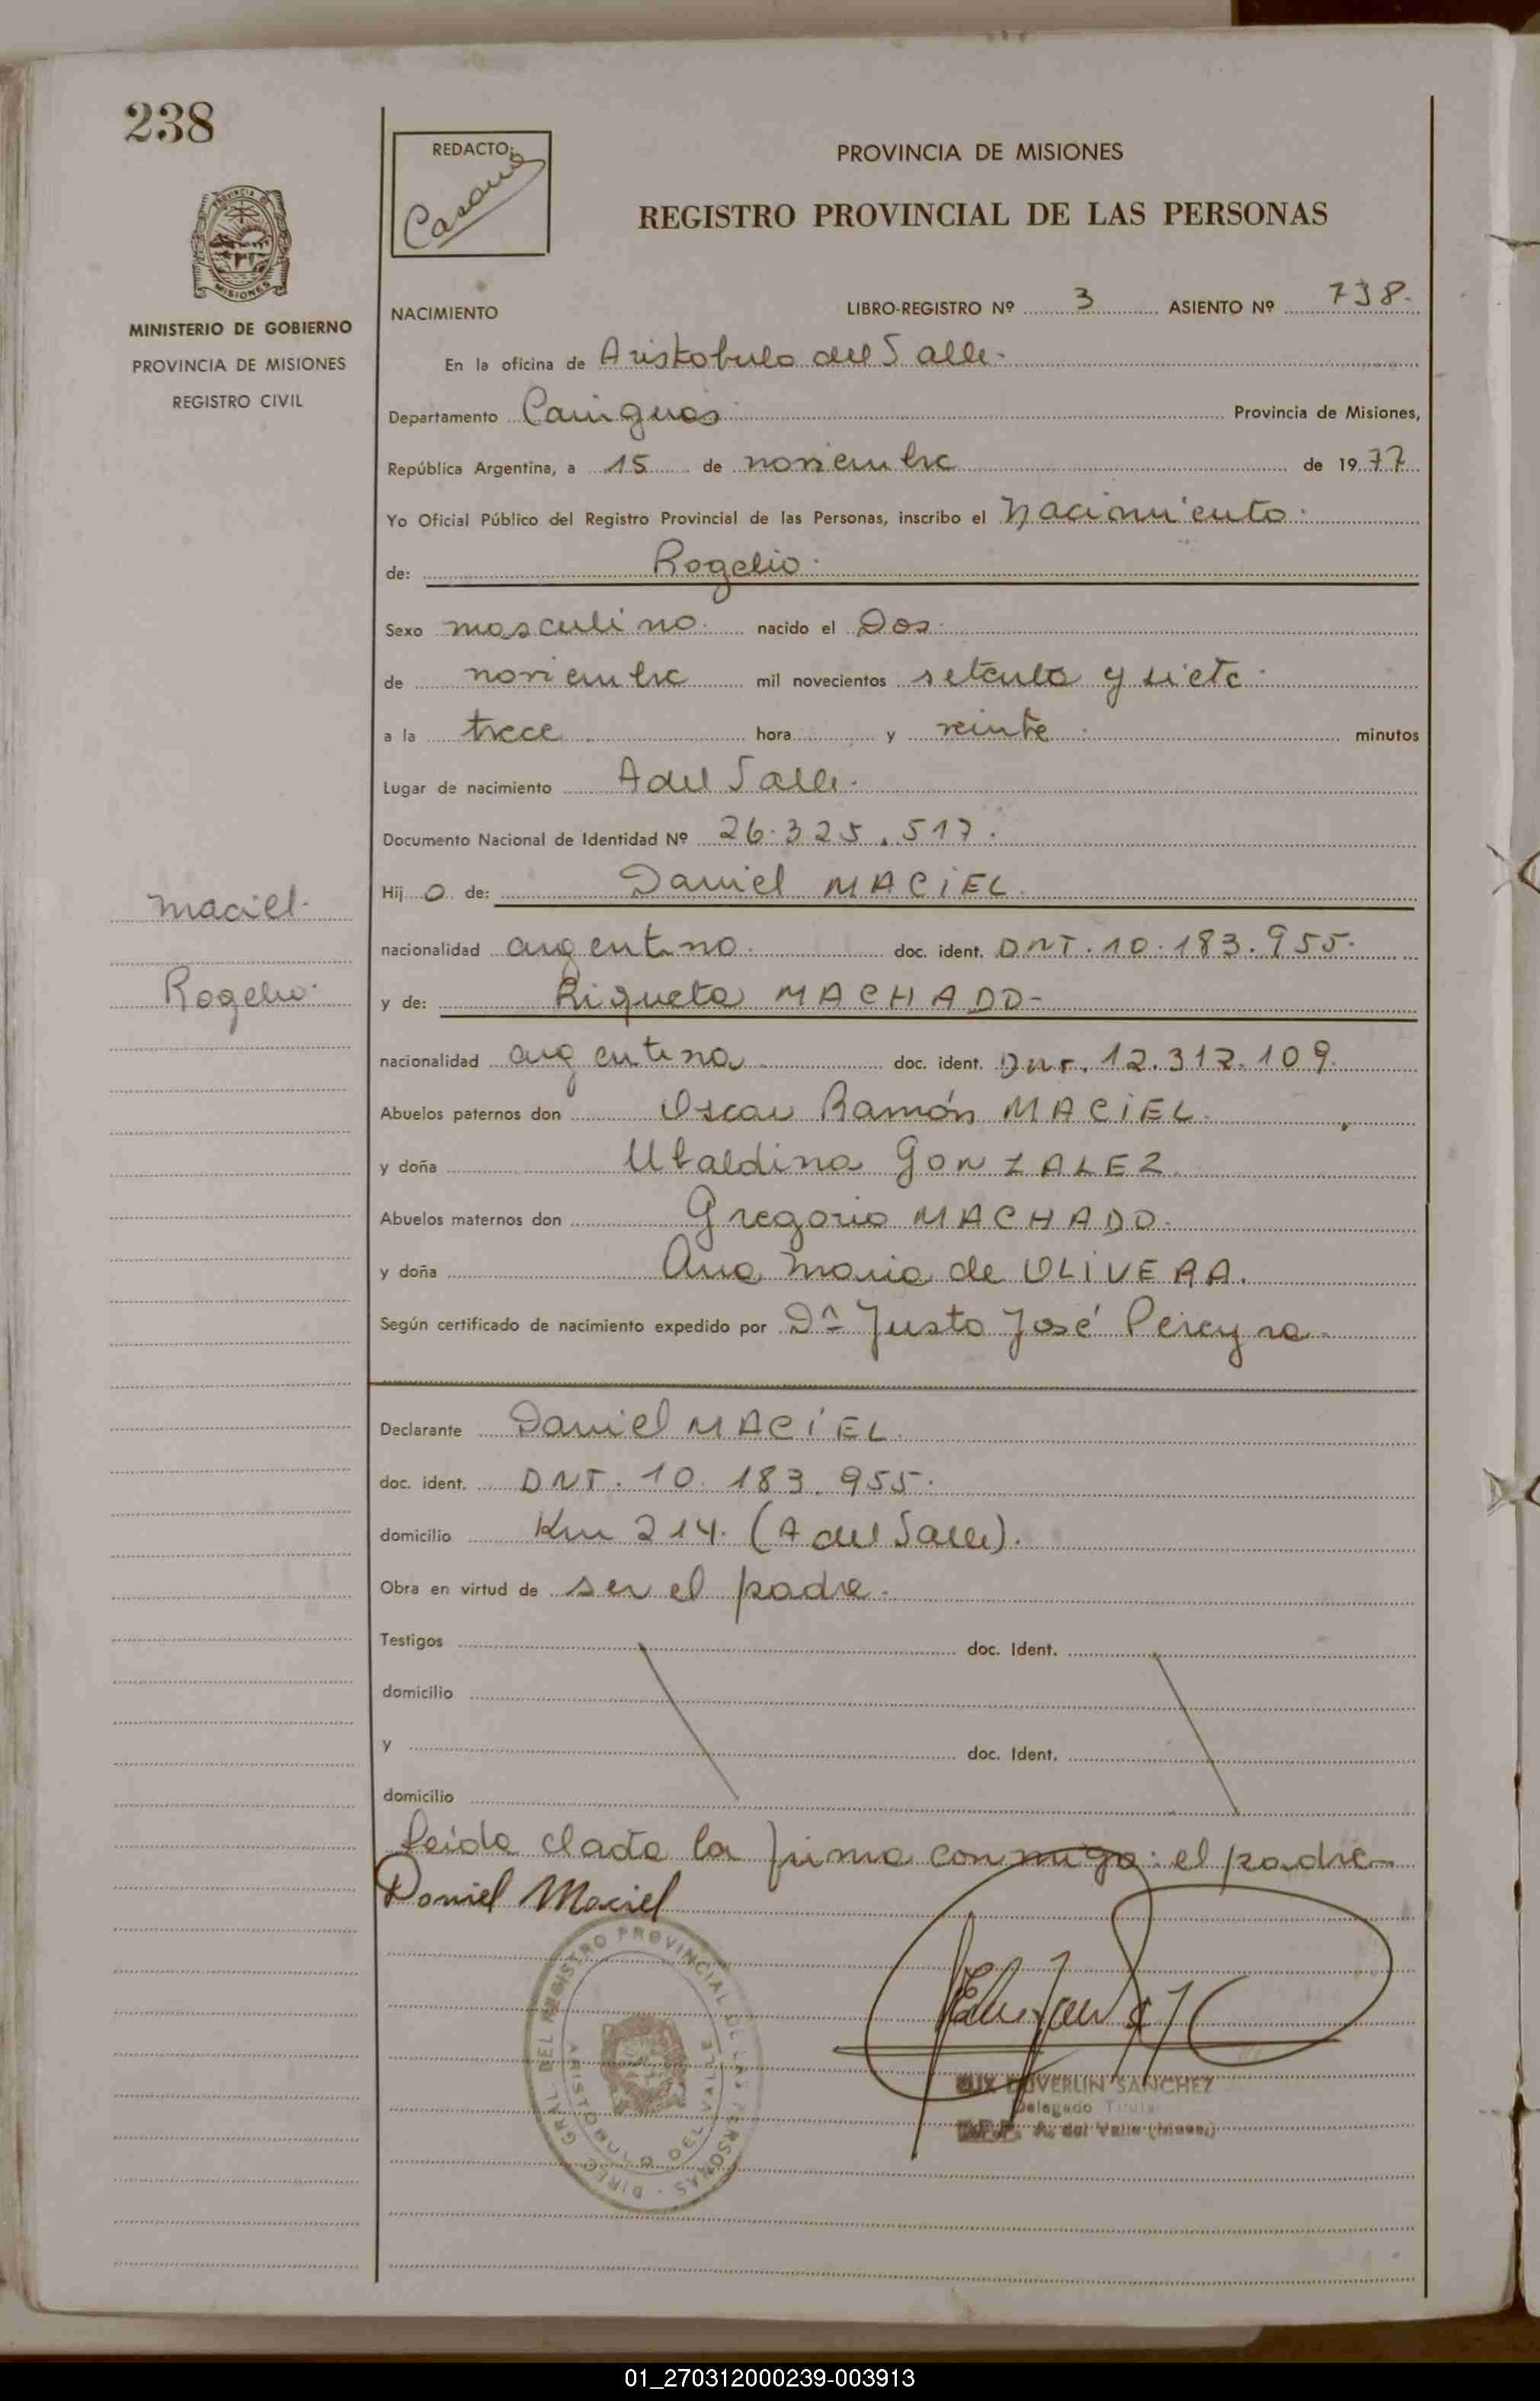 238
REDACTO:
PROVINCIA DE MISIONES
REGISTRO PROVINCIAL DE LAS PERSONAS
PROVINCIA DE
MISIONES
MINISTERIO DE GOBIERNO
PROVINCIA DE MISIONES
REGISTRO CIVIL
NACIMIENTO LIBRO-REGISTRO Nº 3 ASIENTO Nº 738.
En la oficina de Aristobulo del Valle.
Departamento Cainguás Provincia de Misiones,
República Argentina, a 15 de noviembre de 1977
Yo Oficial Público del Registro Provincial de las Personas, inscribo el nacimiento.
de: Rogelio.
Sexo masculino. nacido el Dos.
de noviembre mil novecientos setenta y siete.
a la trece hora y veinte minutos
Lugar de nacimiento A del Valle.
Documento Nacional de Identidad Nº 26.325.517.
Hij o de: Daniel MACIEL.
nacionalidad argentino. doc. ident. DNI. 10.183.955.
y de: Riqueta MACHADO-
nacionalidad argentina doc. ident. DNI. 12.312.109.
Abuelos paternos don Oscar Ramón MACIEL.
y doña Ubaldina GONZALEZ.
Abuelos maternos don Gregorio MACHADO.
y doña Ana Maria de OLIVERA.
Según certificado de nacimiento expedido por Justo José Pereyra.
Maciel.
Rogelio.
Declarante Daniel MACIEL.
doc. ident. DNI. 10.183.955.
domicilio Km 214. (A del Valle).
Obra en virtud de ser el padre.
Testigos doc. Ident.
domicilio
y doc. Ident.
domicilio
Leida el acta la firma conmigo: el padre-
Daniel Maciel
DIREC. GRAL. DEL REGISTRO PROVINCIAL DE LAS PERSONAS
ARISTOBULO DEL VALLE
DUVERLIN SANCHEZ
Delegado Titular
A. del Valle (Mnes.)
01_270312000239-003913